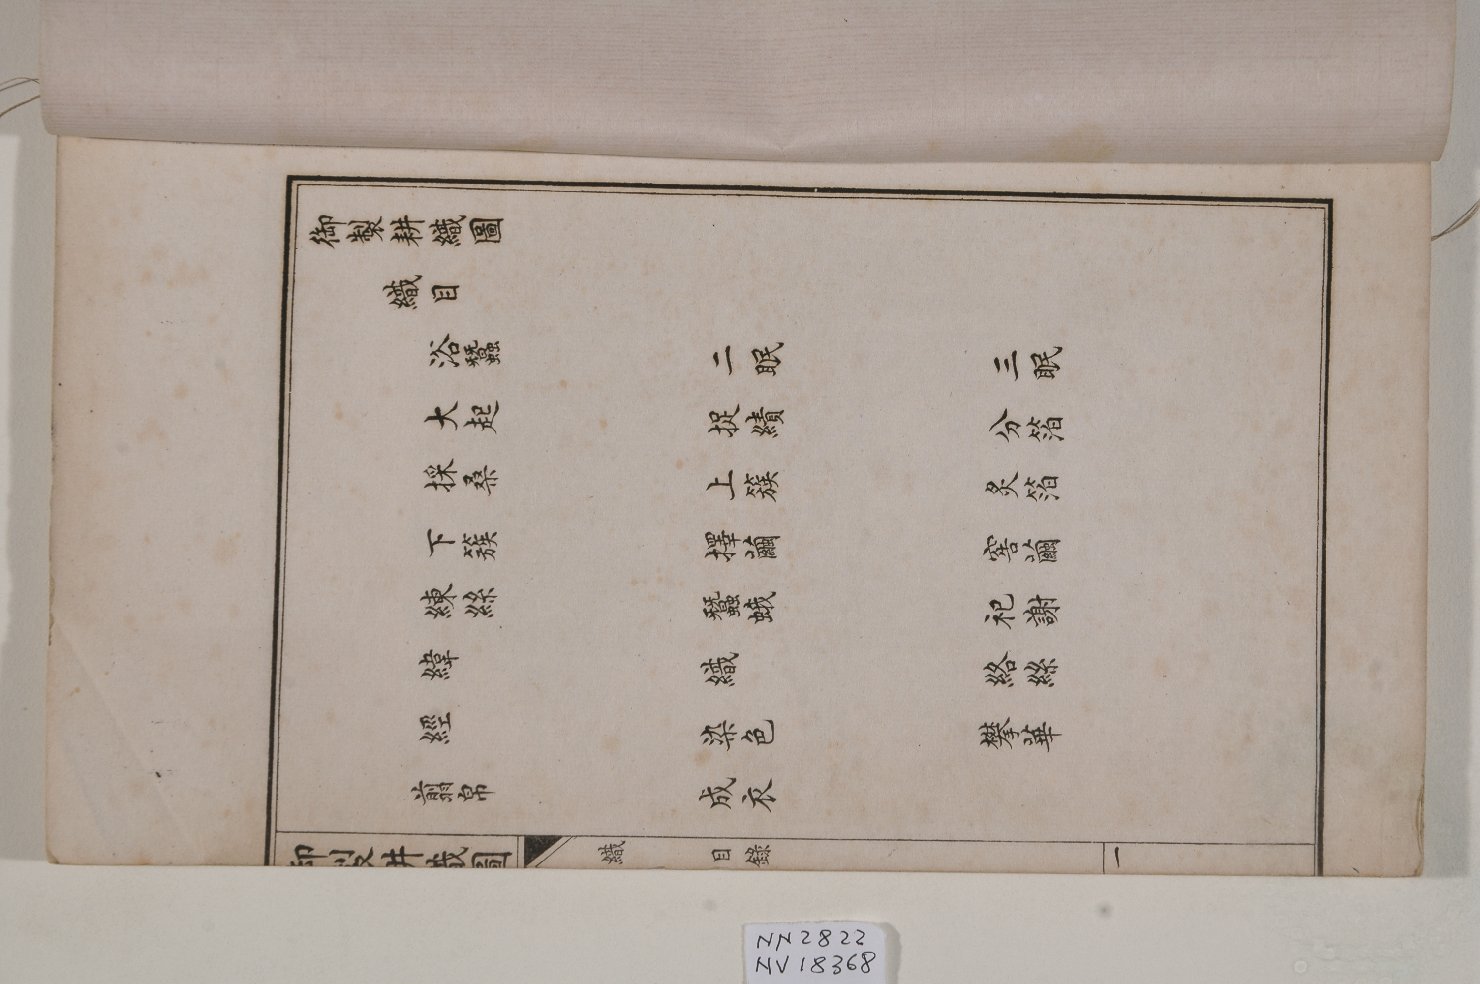 御製耕織圖
織目
浴蠶 二眠 三眠
大起 捉績 分箔
採桑 上簇 炙箔
下簇 擇繭 窖繭
練絲 蠶蛾 祀謝
緯 織 絡絲
經 染色 攀華
翦帛 成衣
御製耕織圖 織 目錄 一
NN2822
NV18368